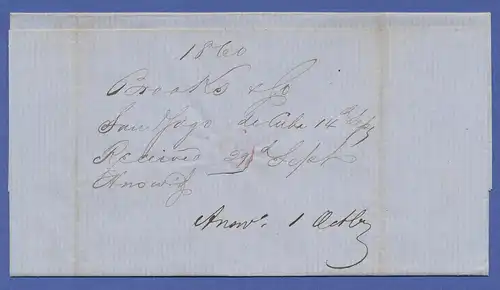 1860
Brooks & Co
San Yago de Cuba 14th Sep
Received 29d Sept
Answd
Answd. 1 Octbr